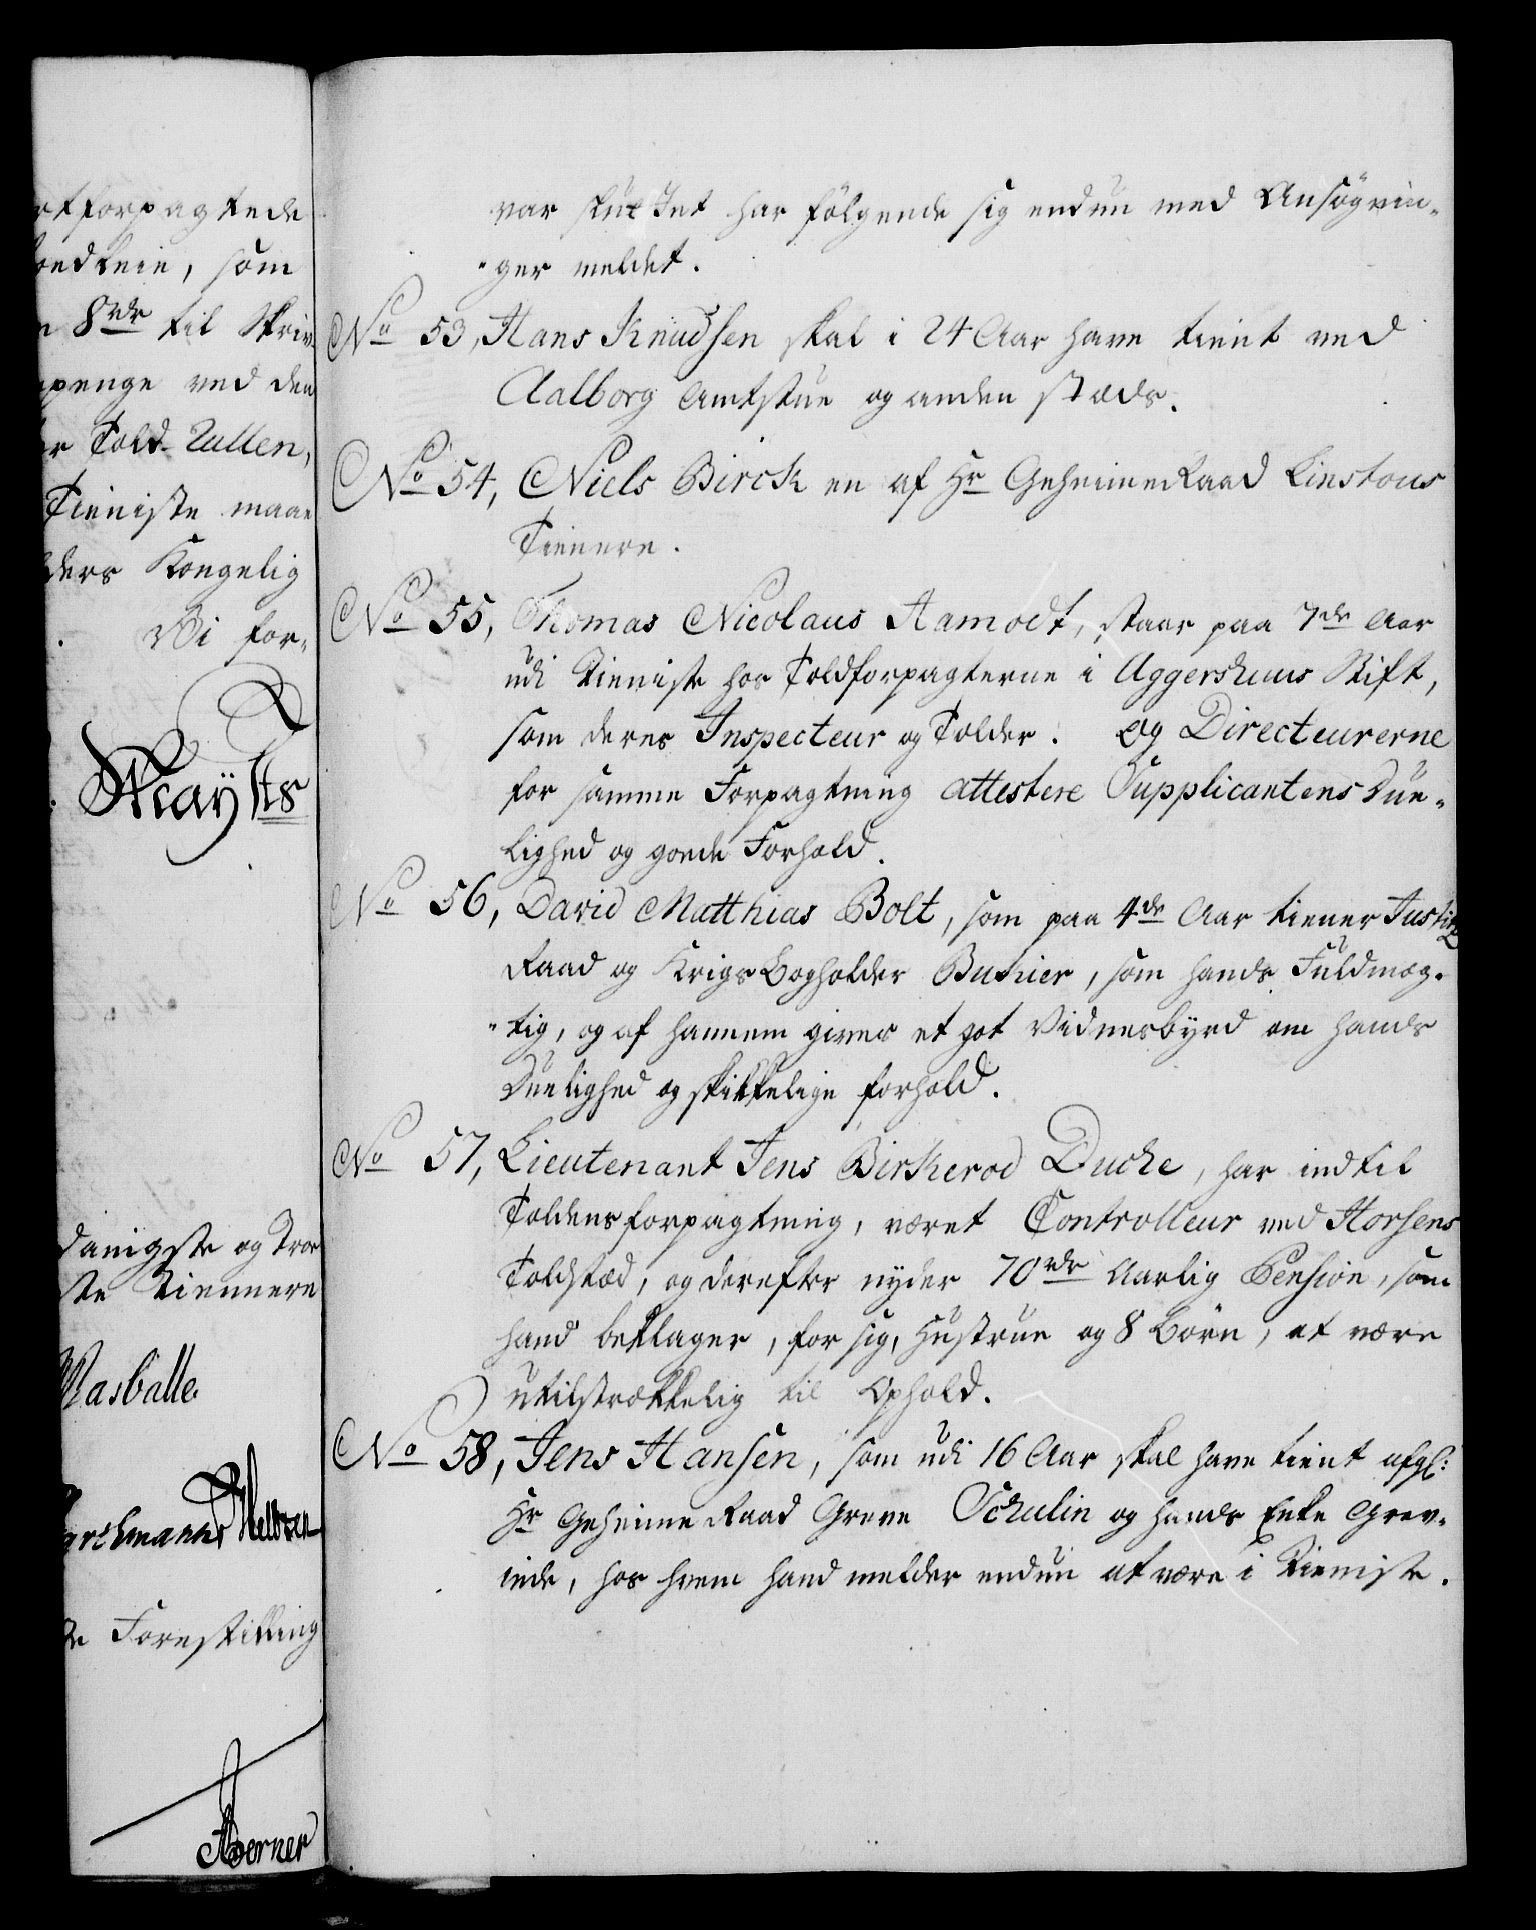 rtforpagtede
som
8rdr til Skriv
penge ved den
Told-Rullen,
Tieniste maae
ders Kongelig
Vi for-
Mayts
danigste og Troe
ste tiennere
Masballe.
Forestilling
Hoerner
var sluttet har fölgende sig endnu med Ansögnin-
-ger meldet.
No 53, Hans Knudsen skal i 24 Aar have tient ved
Aalborg Amtstue og anden stæds.
No 54, Niels Birck en af Hr GeheimeRaad Linstous
Tienere.
No 55, Thomas Nicolaus Aamodt, staar paa 7de Aar
udi Tieniste hos Toldforpagterne i Aggershuus Stift,
som deres Inspecteur og Tolder. Og Directeurerne
for samme Forpagtning attestere Supplicantens Due-
lighed og goede Forhold.
No 56, David Matthias Bolt, som paa 4de Aar tiener Justitz
Raad og Krigs Bogholder , som hands Fuldmæg-
-tig, og af hannem gives et got Vidnesbyrd om hands
Duelighed og skikkelige forhold.
No 57, Lieutenant Jens Birkerod Ducke, har indtil
Toldens forpagtning, været Controlleur ved Horsens
Toldstæd, og derefter nyder 70rdr Aarlig Pension, som
hand beklager, for sig, Hustrue og 8 Börn, at være
utilstrækkelig til Ophold.
No 58, Jens Hansen, som udi 16 Aar skal have tient afgl:
Hr Geheime Raad Greve Schulin og hands Enke Grev-
inde, hos hvem hand melder endnu at være i Tieniste.